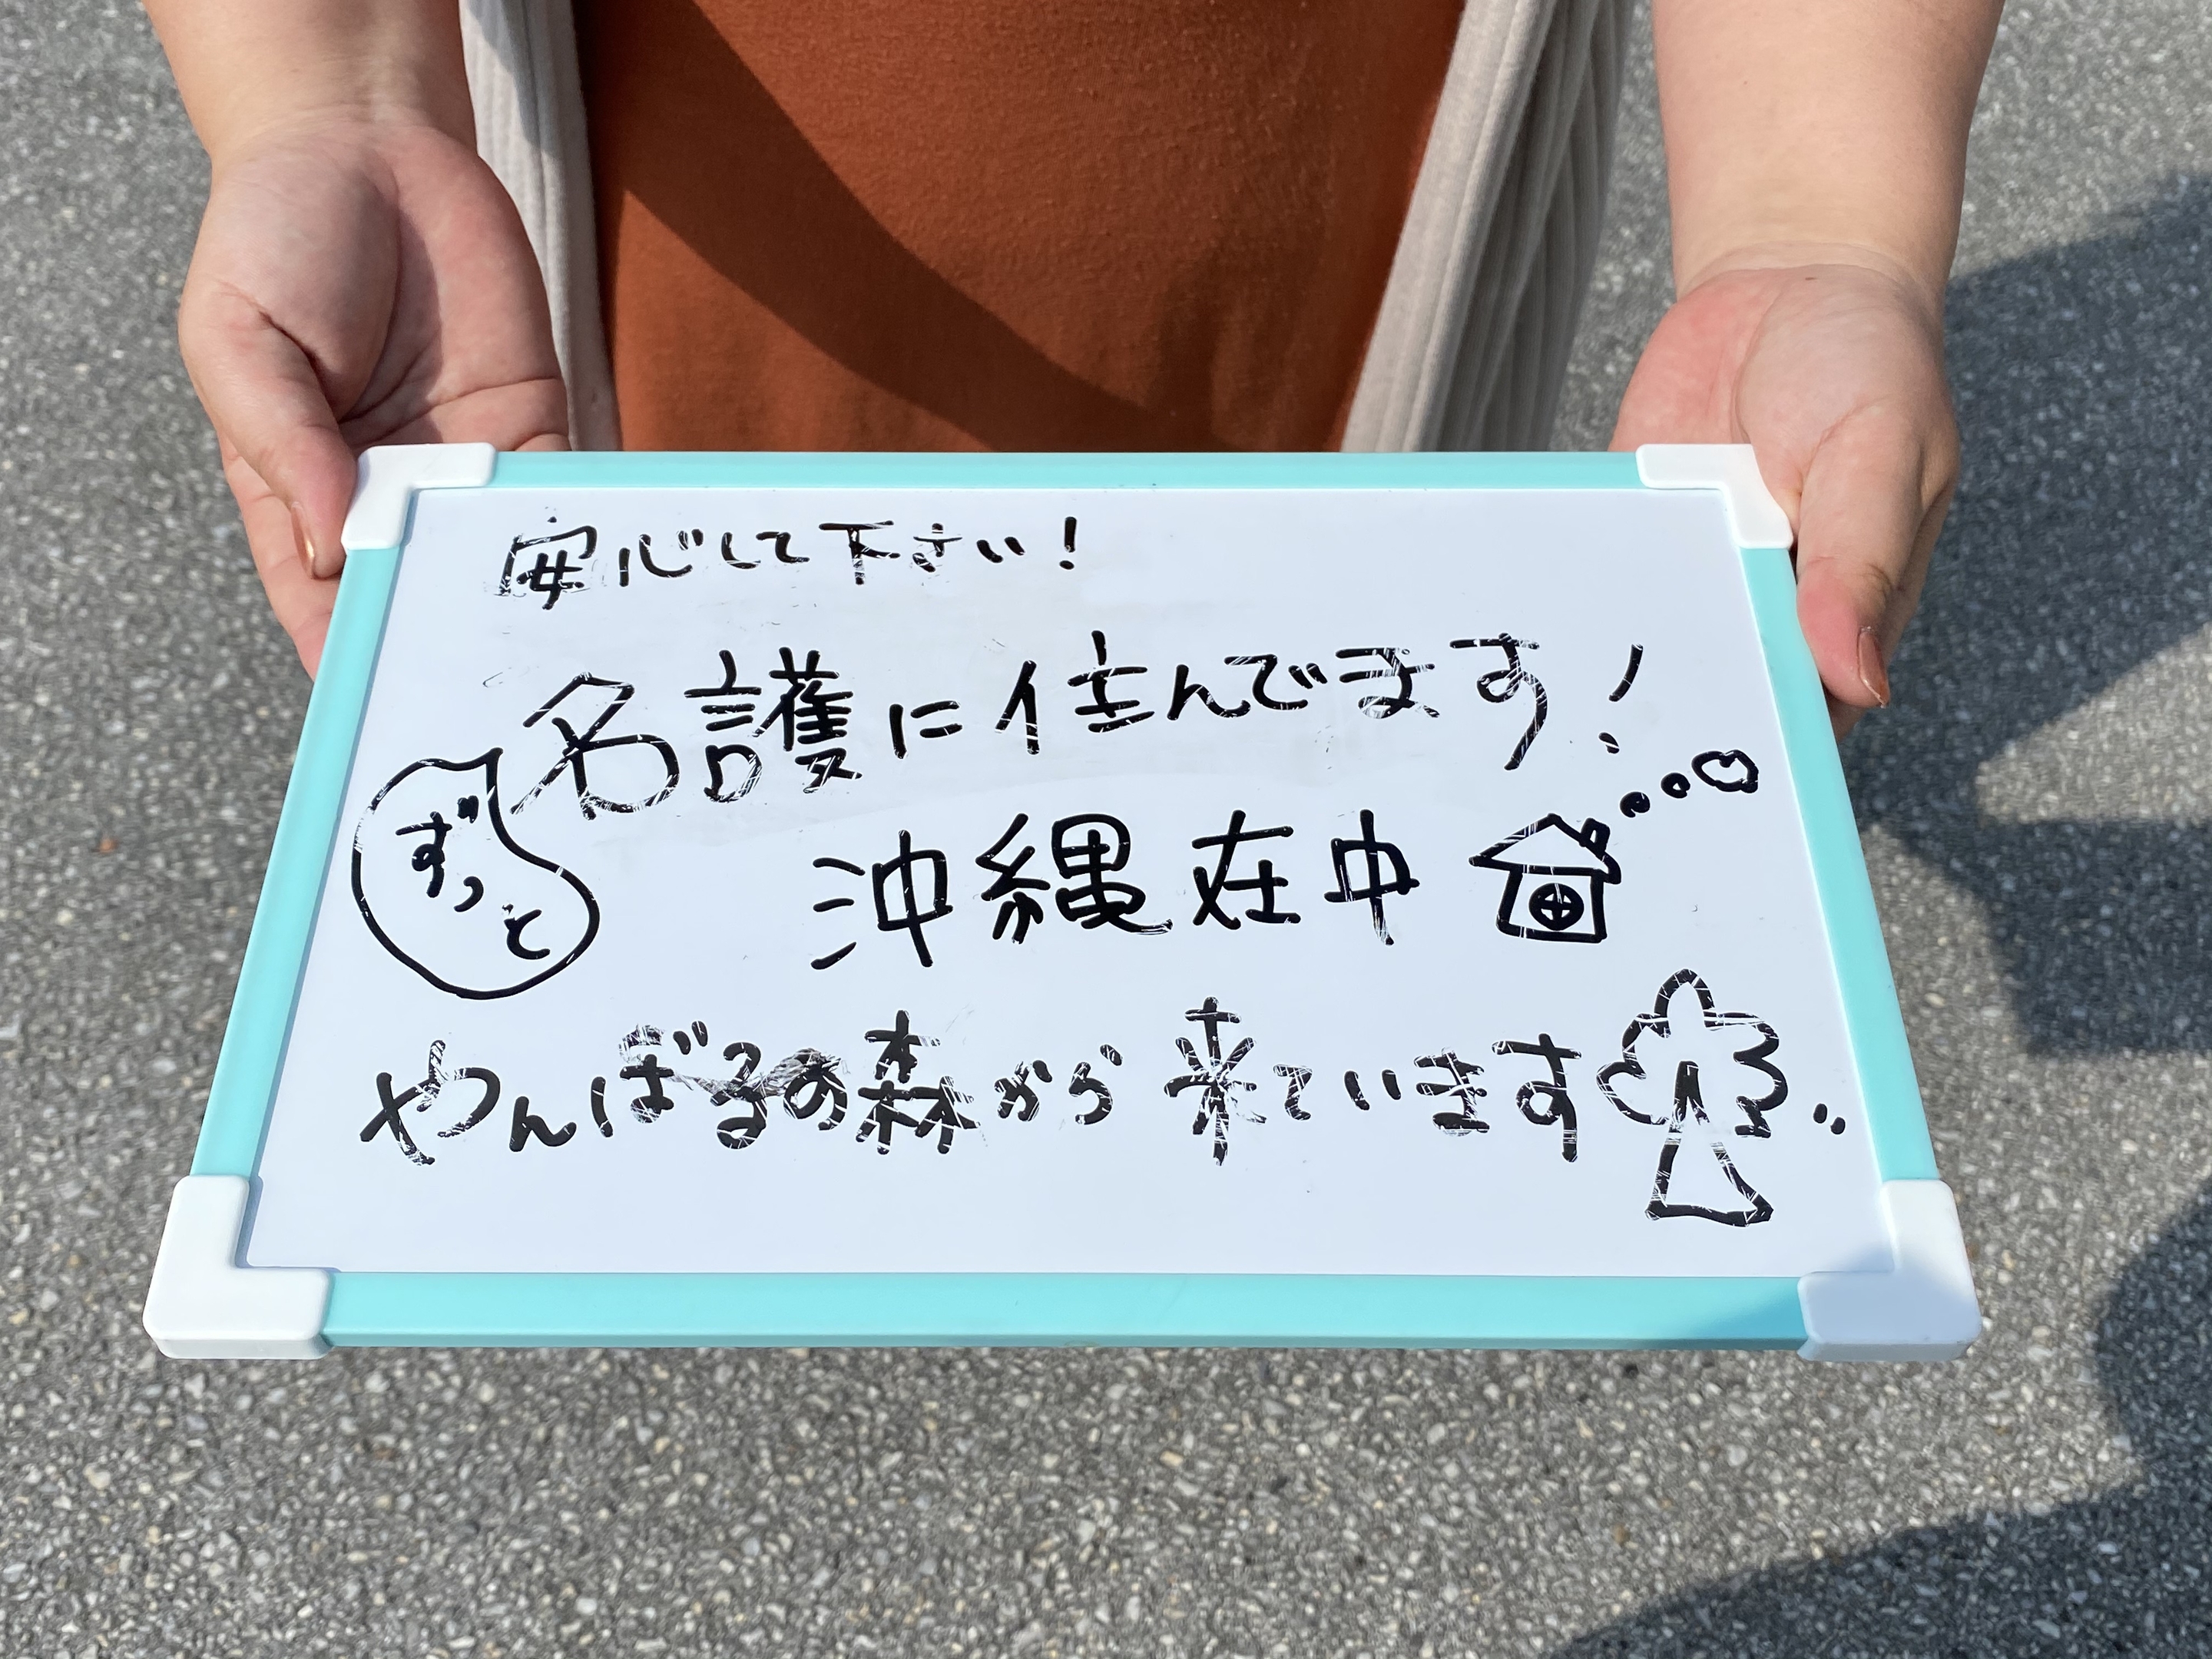 安心して下さい!
名護に住んでます!
ずっと
沖縄在中
やんばるの森から来ています